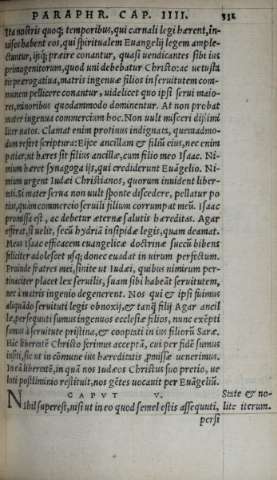 PARAPHR. CAP. IIII.
Ita nostris quoq; temporibus, qui carnali legi hærent, in-
uisos habent eos, qui spiritualem Euangelij legem ample-
ctuntur, ipsisq; præire conantur, quasi uendicantes sibi ius
primogenitorum, quod uni debebatur Christo: ac uetusta
tis prærogatiua, matris ingenuæ filios in seruitutem com-
munem pellicere conantur, uidelicet quo ipsi serui maio-
res, minoribus quodammodo dominentur. At non probat
mater ingenua commercium hoc. Non uult misceri disimi
liter natos. Clamat enim protinus indignans, quemadmo-
dum refert scriptura: Eijce ancillam & filiũ eius, nec enim
patiar, ut hæres sit filius ancillæ, cum filio meo Isaac. Ni-
mium hæret synagoga ijs, qui crediderunt Euangelio. Ni-
mium urgent Iudæi Christianos, quorum inuident liber-
tati. Si mater serua non uult sponte discedere, pellatur po
tius, quam commercio seruili filium corrumpat meũ. Isaac
promissa est, ac debetur æternæ salutis hæreditas. Agar
efferat, si uelit, secũ hydriã insipidæ legis, quam adamat.
Meus Isaac efficacem euangelicæ doctrinæ succũ bibens
feliciter adolescet usq; donec euadat in uirum perfectum.
Proinde fratres mei, sinite ut Iudæi, quibus nimirum per-
tinaciter placet lex seruilis, suam sibi habeāt seruitutem,
nec à matris ingenio degenerent. Nos qui & ipsi fuimus
aliquādo seruituti legis obnoxij, & tanq̃ filij Agar ancil
læ persequuti sumus ingenuos ecclesiæ filios, nunc exēpti
sumus à seruitute pristina, & cooptati in ius filiorũ Saræ.
Hic libertatē Christo ferimus acceptā, cui per fidē sumus
insiti, sic ut in cōmune ius hæreditatis promissæ uenerimus.
In eā libertatē, in quā nos Iudæos Christus suo pretio, ue
luti postliminio restituit, uos gētes uocauit per Euāgeliũ.
CAPVT V.
Nihil superest, nisi ut in eo quod semel estis assequuti,
State & no-
lite iterum.
persi